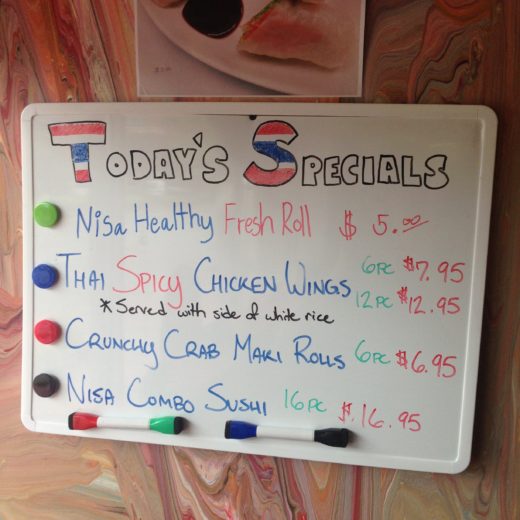 TODAY'S SPECIALS
Nisa Healthy Fresh Roll $5.00
THAI SPICY CHICKEN WINGS 6PC $7.95
12PC $12.95
*Served with side of white rice
CRUNCHY CRAB MAKI ROLLS 6PC $6.95
NISA COMBO SUSHI 16PC $.16.95